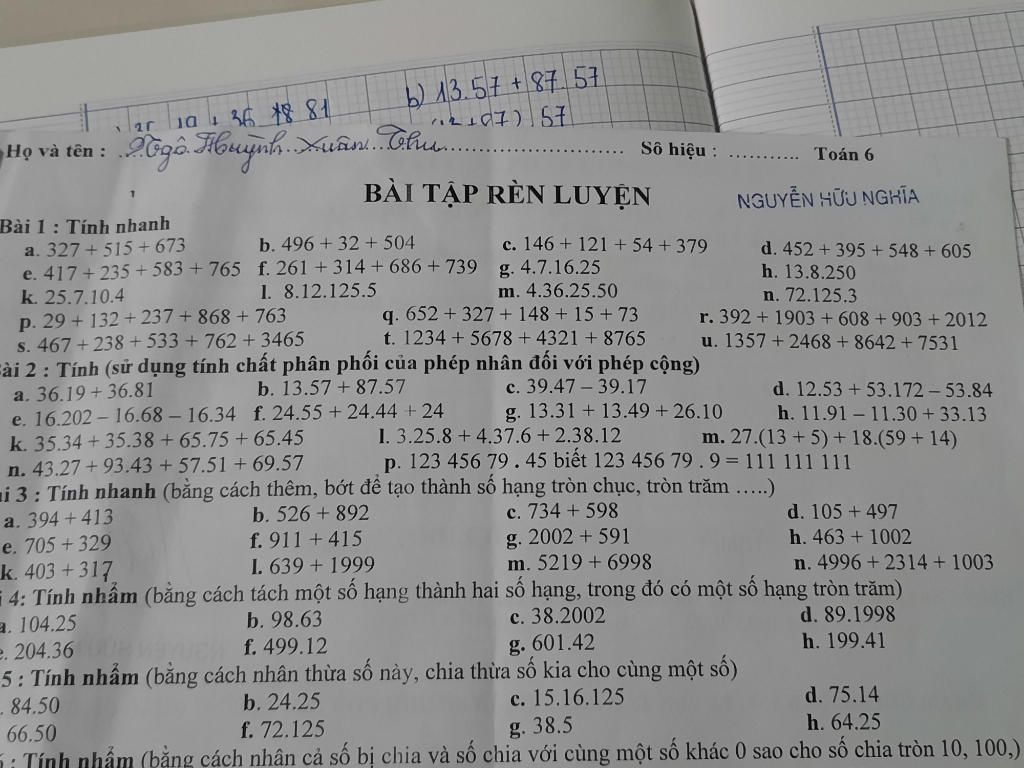 b) 13.57 + 87.57
36 18 81
57
Họ và tên : Ngô Huỳnh Xuân Thu Số hiệu : ........... Toán 6
BÀI TẬP RÈN LUYỆN NGUYỄN HỮU NGHĨA
Bài 1 : Tính nhanh
a. 327 + 515 + 673 b. 496 + 32 + 504 c. 146 + 121 + 54 + 379 d. 452 + 395 + 548 + 605
e. 417 + 235 + 583 + 765 f. 261 + 314 + 686 + 739 g. 4.7.16.25 h. 13.8.250
k. 25.7.10.4 l. 8.12.125.5 m. 4.36.25.50 n. 72.125.3
p. 29 + 132 + 237 + 868 + 763 q. 652 + 327 + 148 + 15 + 73 r. 392 + 1903 + 608 + 903 + 2012
s. 467 + 238 + 533 + 762 + 3465 t. 1234 + 5678 + 4321 + 8765 u. 1357 + 2468 + 8642 + 7531
ài 2 : Tính (sử dụng tính chất phân phối của phép nhân đối với phép cộng)
a. 36.19 + 36.81 b. 13.57 + 87.57 c. 39.47 – 39.17 d. 12.53 + 53.172 – 53.84
e. 16.202 – 16.68 – 16.34 f. 24.55 + 24.44 + 24 g. 13.31 + 13.49 + 26.10 h. 11.91 – 11.30 + 33.13
k. 35.34 + 35.38 + 65.75 + 65.45 l. 3.25.8 + 4.37.6 + 2.38.12 m. 27.(13 + 5) + 18.(59 + 14)
n. 43.27 + 93.43 + 57.51 + 69.57 p. 123 456 79 . 45 biết 123 456 79 . 9 = 111 111 111
i 3 : Tính nhanh (bằng cách thêm, bớt để tạo thành số hạng tròn chục, tròn trăm …..)
a. 394 + 413 b. 526 + 892 c. 734 + 598 d. 105 + 497
e. 705 + 329 f. 911 + 415 g. 2002 + 591 h. 463 + 1002
k. 403 + 317 l. 639 + 1999 m. 5219 + 6998 n. 4996 + 2314 + 1003
i 4: Tính nhẩm (bằng cách tách một số hạng thành hai số hạng, trong đó có một số hạng tròn trăm)
a. 104.25 b. 98.63 c. 38.2002 d. 89.1998
e. 204.36 f. 499.12 g. 601.42 h. 199.41
5 : Tính nhẩm (bằng cách nhân thừa số này, chia thừa số kia cho cùng một số)
. 84.50 b. 24.25 c. 15.16.125 d. 75.14
66.50 f. 72.125 g. 38.5 h. 64.25
: Tính nhẩm (bằng cách nhân cả số bị chia và số chia với cùng một số khác 0 sao cho số chia tròn 10, 100,)